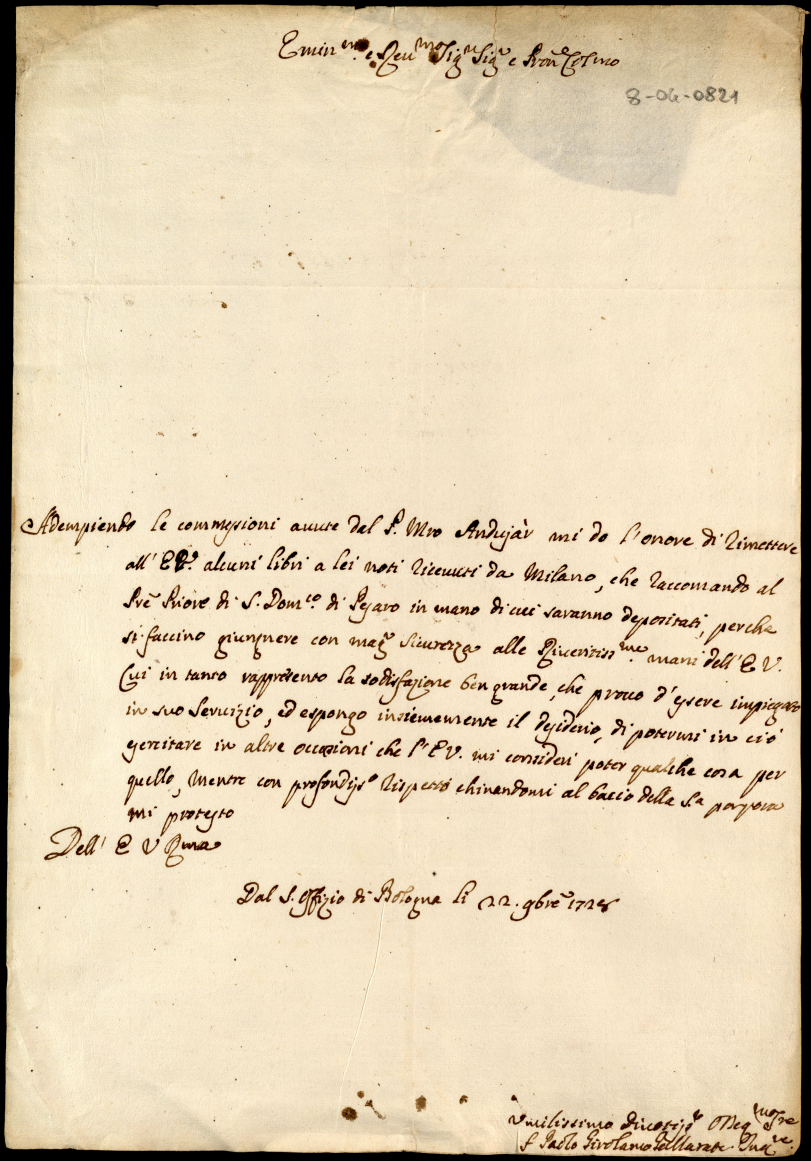 Emin.mo e Reu.mo Sig.r Sig.r e Pron.e Col.mo
8-06-0821
Adempiendo le commissioni auute dal P. Mro Andujàr mi do l'onore di rimettere
all' E V. alcuni libri a lei noti riceuuti da Milano, che raccomando al
Prẽ Priore di S. Dom.co di Pesaro in mano di cui saranno depositati, perche
si faccino giungnere con mag.r sicurezza alle Riueritiss.me mani dell' E V.
Cui in tanto rappresento la sodisfazione ben grande, che prouo d'essere impiegato
in suo seruizio, ed espongo insiememente il desiderio, di potermi in ciò
esercitare in altre occasioni che l'E V. mi consideri poter qualche cosa per
quello, mentre con profondiss.o rispetto chinandomi al bacio della S.a porpora
mi protesto
Dell' E V Rma
Dal S. Offizio di Bologna li 22. 9bre 1728
Vmilissimo Diuotiss.o Obleg.mo Sre
F. Paolo Girolamo Gallarati Inq.re